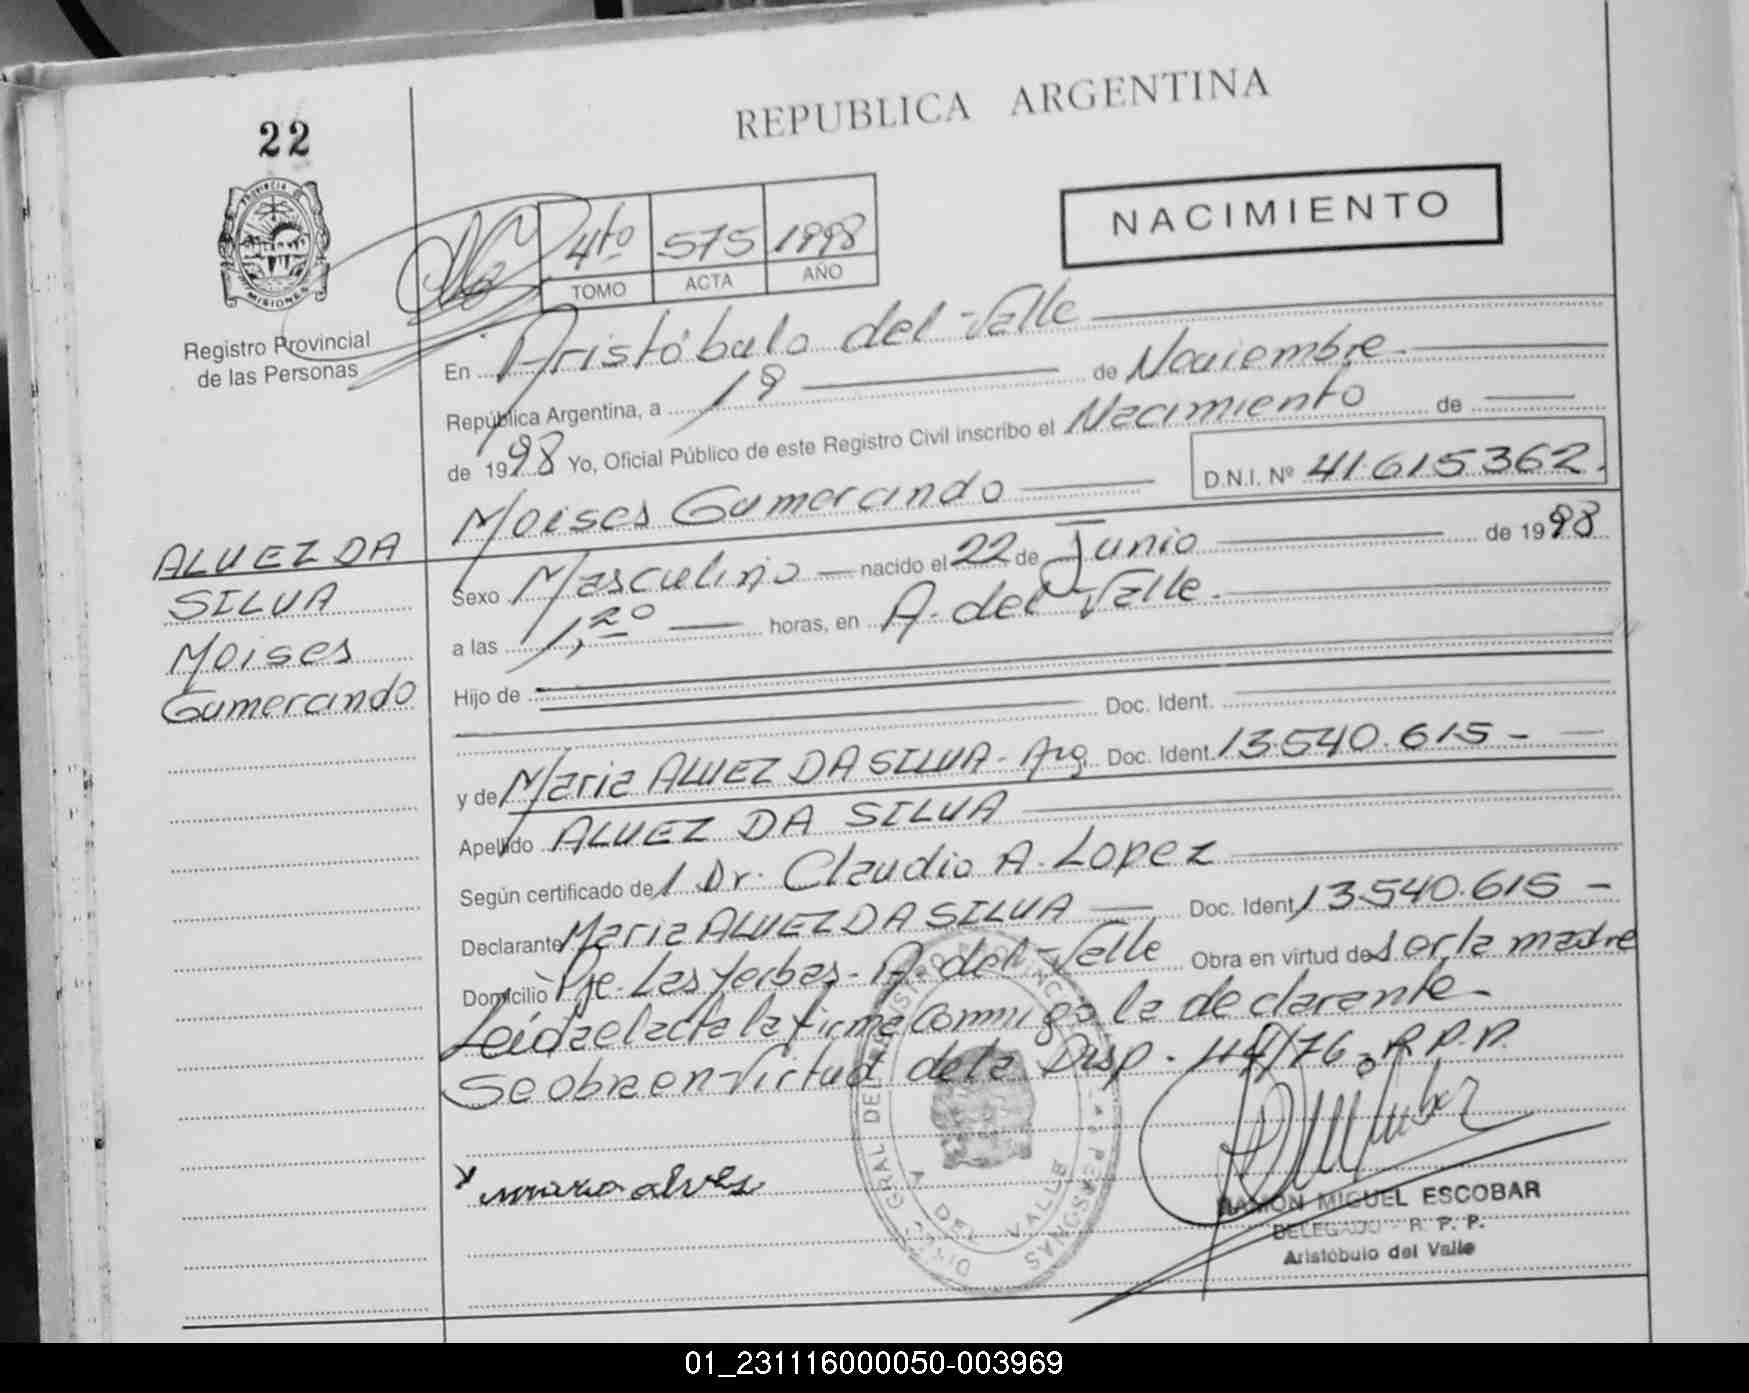 REPUBLICA ARGENTINA
22
PROVINCIA DE
MISIONES
Registro Provincial
de las Personas
NACIMIENTO
4to 575 1998
TOMO ACTA AÑO
En Aristóbulo del Valle
República Argentina, a 18 de Noviembre
de 1998 Yo, Oficial Público de este Registro Civil inscribo el Nacimiento de
Moises Gumercindo D.N.I. Nº 41.615.362.
ALVEZ DA
SILVA
Moises
Gumercindo
Sexo Masculino nacido el 22 de Junio de 1998
a las 1,20 horas, en A. del Valle.
Hijo de
Doc. Ident.
y de Maria ALVEZ DA SILVA - Arg. Doc. Ident. 13.540.615 -
Apellido ALVEZ DA SILVA
Según certificado de Dr. Claudio A. Lopez
Declarante Maria ALVEZ DA SILVA Doc. Ident 13.540.615 -
Domicilio Pje. Las Yerbas - A. del Valle Obra en virtud de ser la madre
Leida el acta la firma conmigo la declarante -
Se obra en Virtud de la Disp. 114/76 R.P.P.
maria alves
DIREC. GRAL. DEL REGISTRO PROVINCIAL DE LAS PERSONAS
A. DEL VALLE
RAMON MIGUEL ESCOBAR
DELEGADO - R. P. P.
Aristóbulo del Valle
01_231116000050-003969